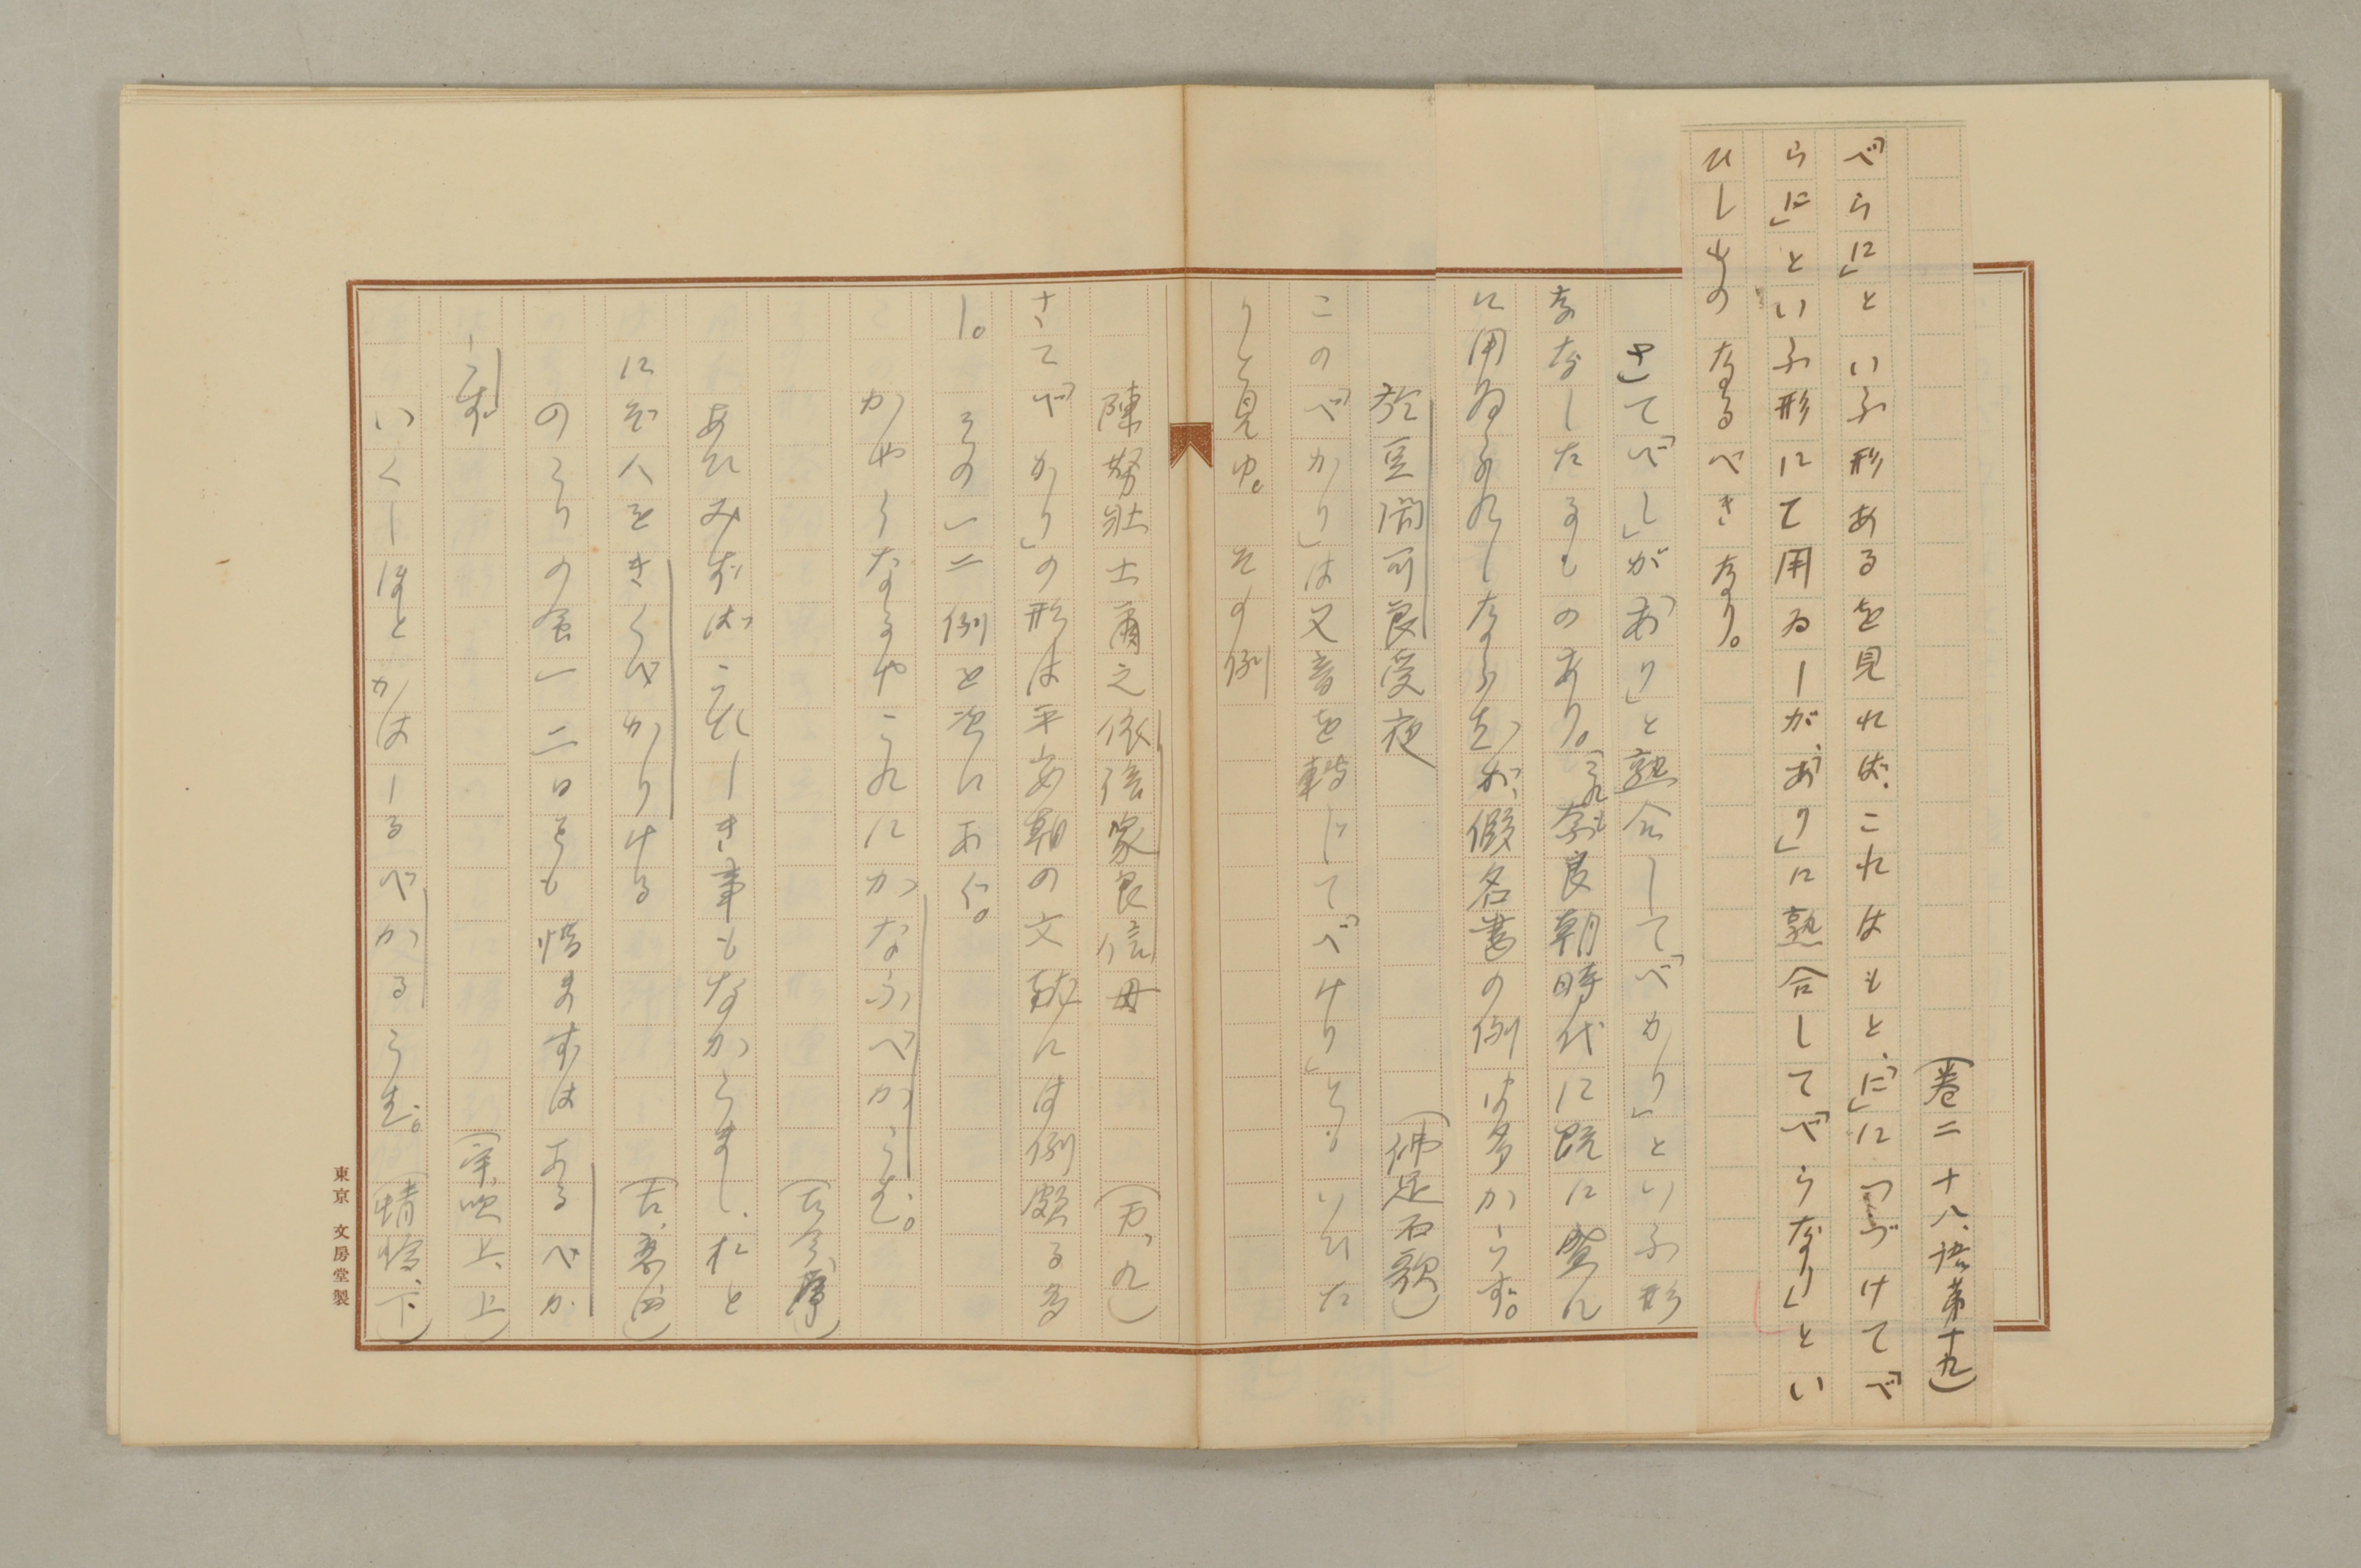 (巻二十八、語第十九)
「べらに」といふ形あるを見れば、これはもと、「に」につづけて「べ
らに」といふ形にて用ゐしが、「あり」に熟合して「べらなり」とい
ひしものなるべきなり。
さて「べし」が「あり」と熟合して「べかり」といふ形
をなしたるものあり。これも奈良朝時代に既に盛に
に用ゐられしならむが、假名書の例は多からず。
於豆閇可良受夜(佛足石歌)
この「べかり」は又音を轉じて「べけり」ともいひた
りと見ゆ。その例
陳努壯士爾之依倍家良信母(万、九)
さて「べかり」の形は平安朝の文献には例頗る多
し。その一二例を次にあぐ。
かやうなるやこれにかなふべからむ。
(古今、序)
あひみずはこひしき事もなからまし、おと
にぞ人をきくべかりける(古、恋四)
のこりの金一二日とも惜まずはあるべか
らず(宇、吹上、上)
いくしほとかはしるべかるらむ。(蜻蛉、下)
東京 文房堂製